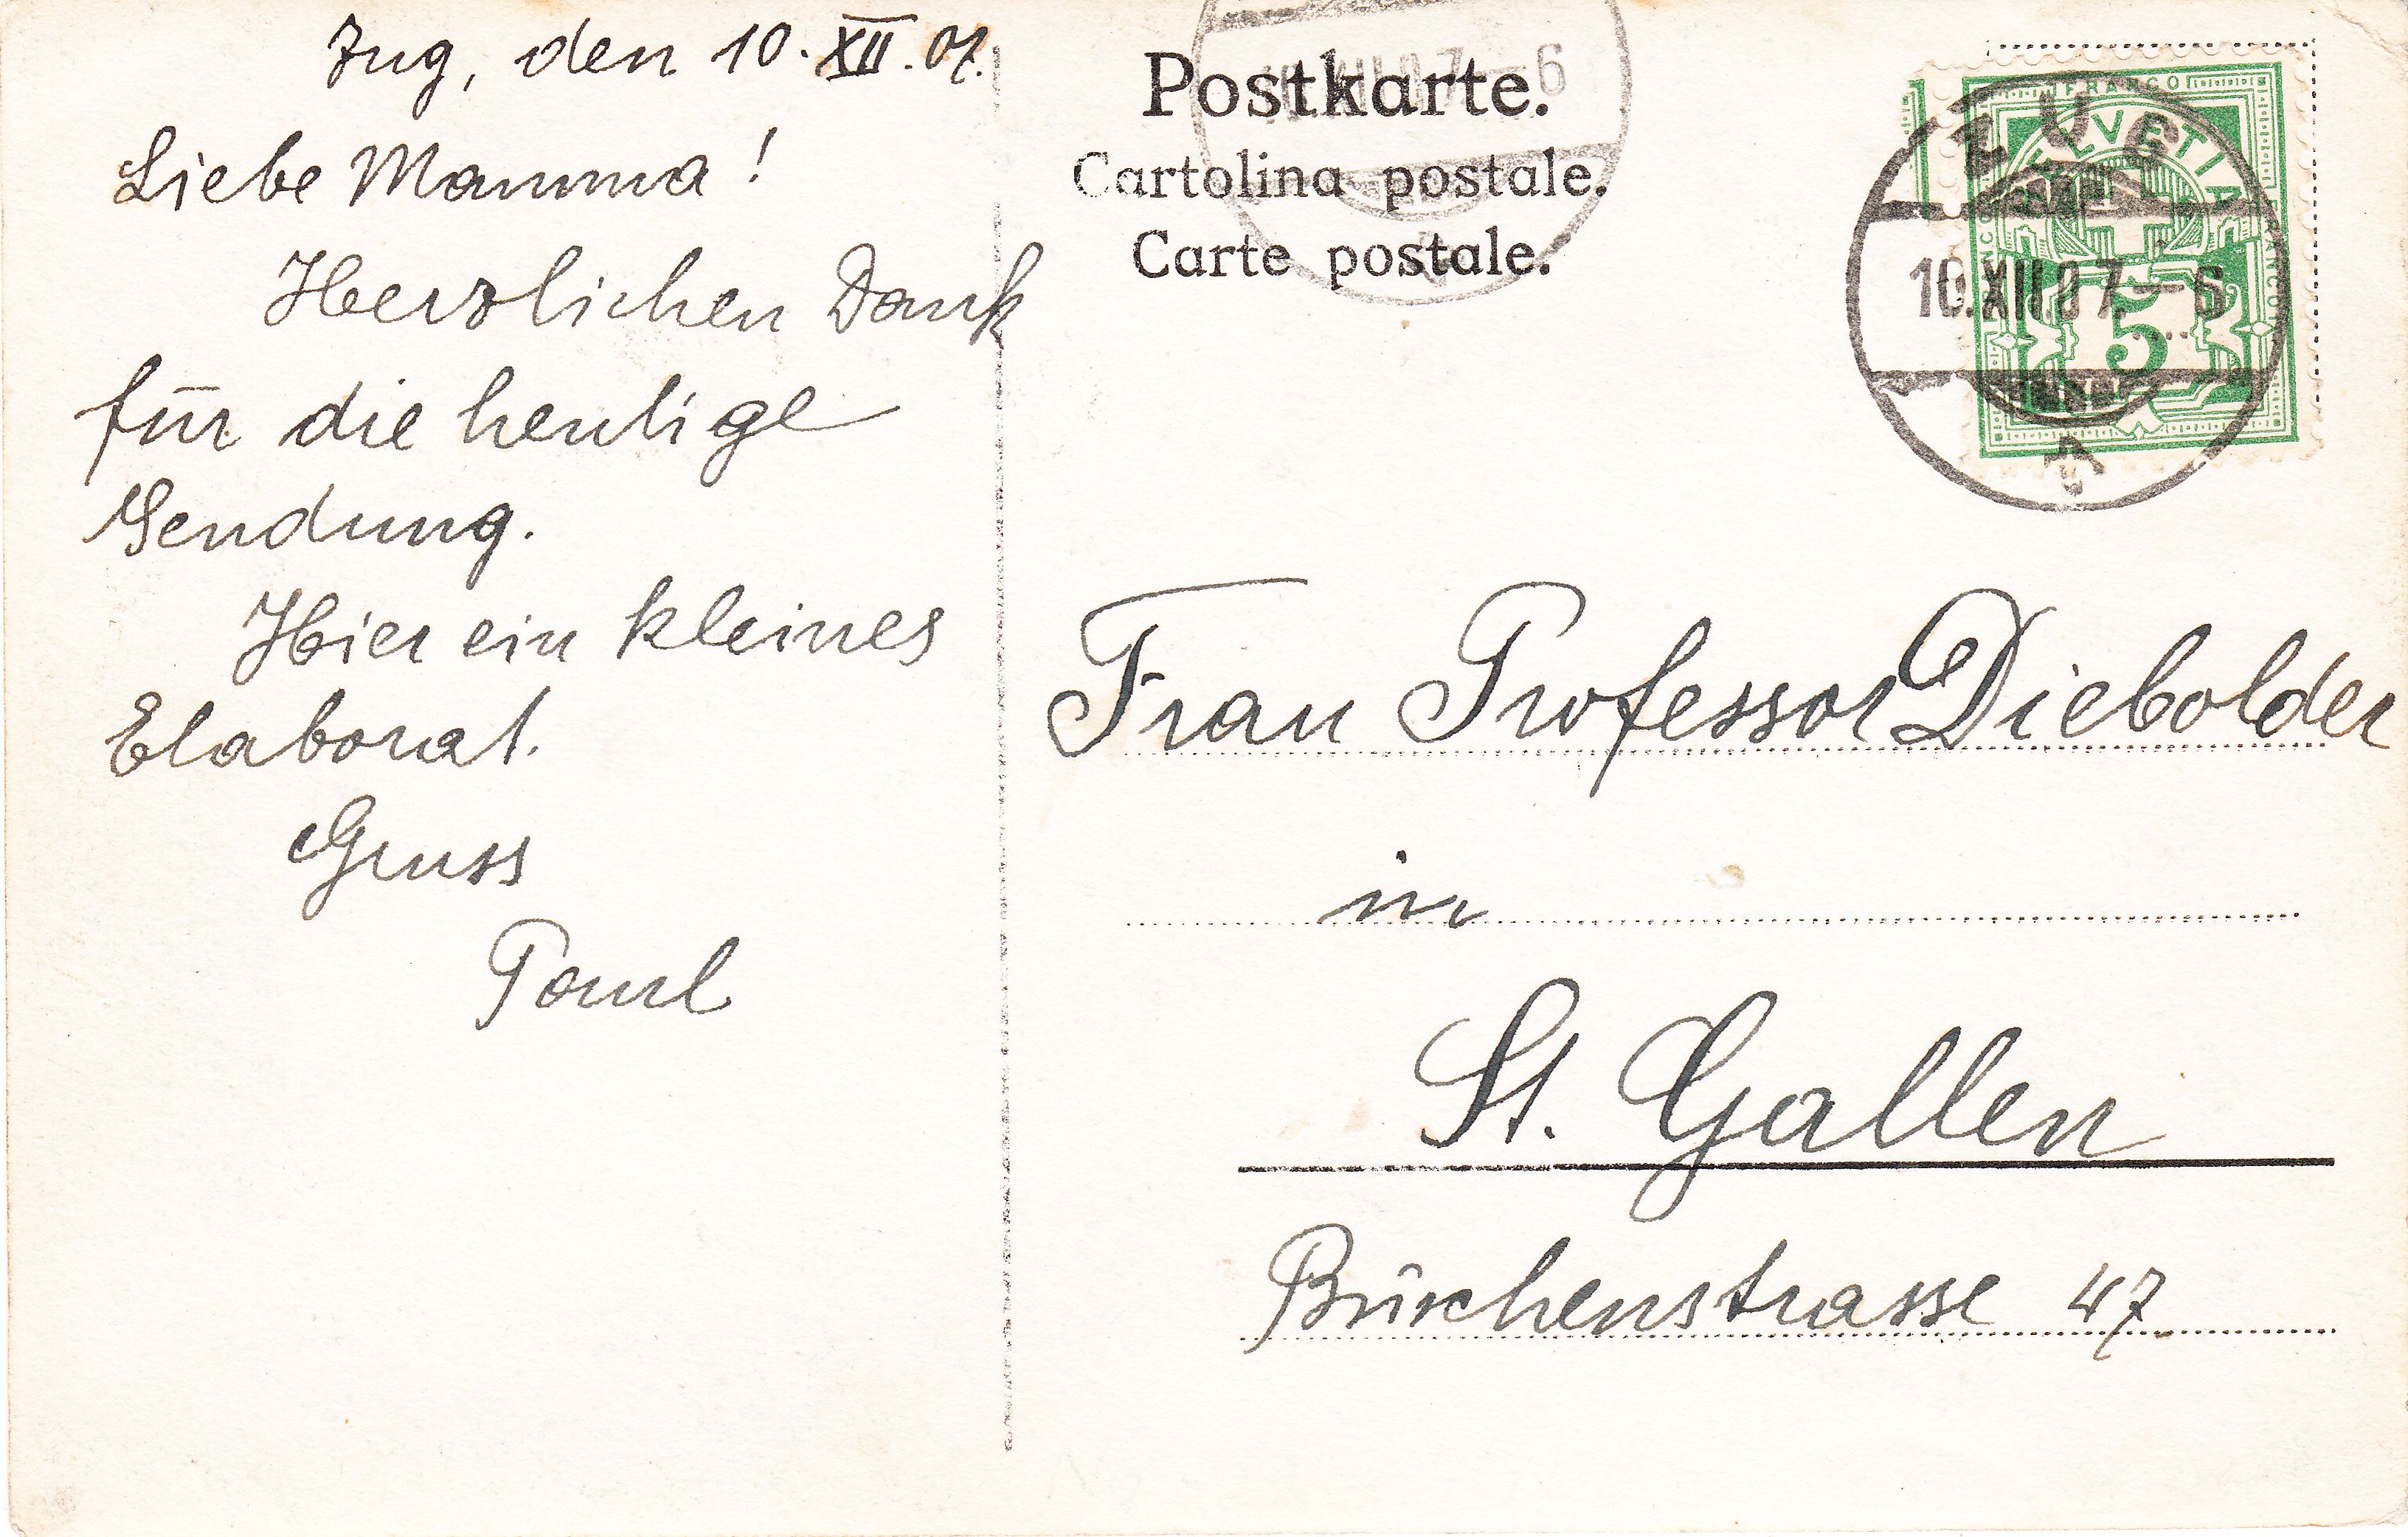 Zug, den 10. XII. 07.
Liebe Mamma!
Herzlichen Dank
für die heutige
Sendung.
Hier ein kleines
Elaborat.
Gruss
Paul
Postkarte.
Cartolina postale.
Carte postale.
FRANCO
HELVETIA
5
ZUG
10.XII.07.–6
Frau Professor Diebolder
in
St. Gallen
47